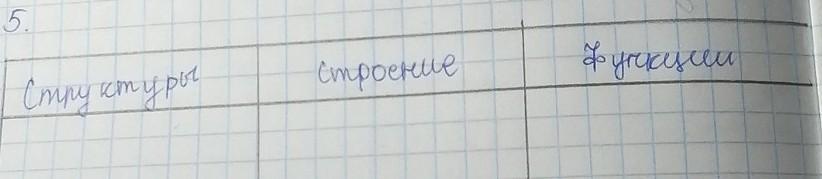 5.
Структуры строение Функции